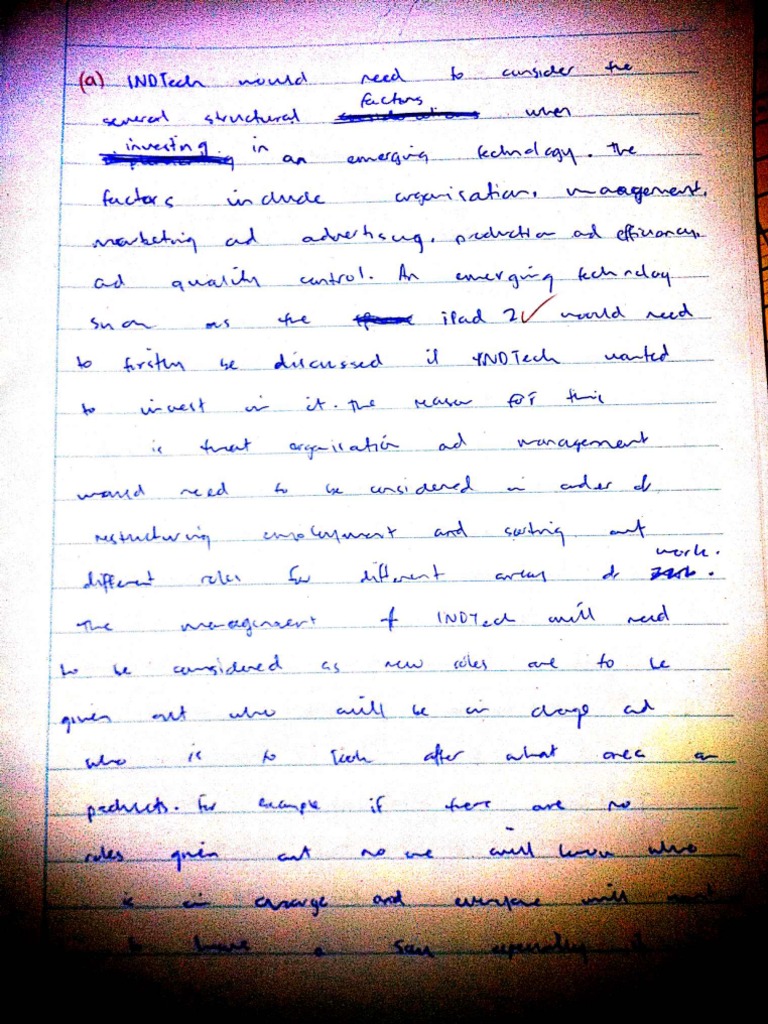 (a) INDTech would need to consider the
several structural factors when
investing in an emerging technology. The
factors include organisation, management,
marketing ad advertising, production ad efficiency,
ad quality control. An emerging technology
such as the iPad 2 would need
to firstly be discussed if INDTech wanted
to invest in it. The reason for this
is that organisation ad management
would need to be considered in order of
restructuring employment and sorting out
different roles for different areas of work.
The management of INDTech will need
to be considered as new roles are to be
given out who will be in charge ad
who is to look after what area or
products. For example if there are no
roles given out no one will know who
is in charge and everyone will want
to have a say especially if